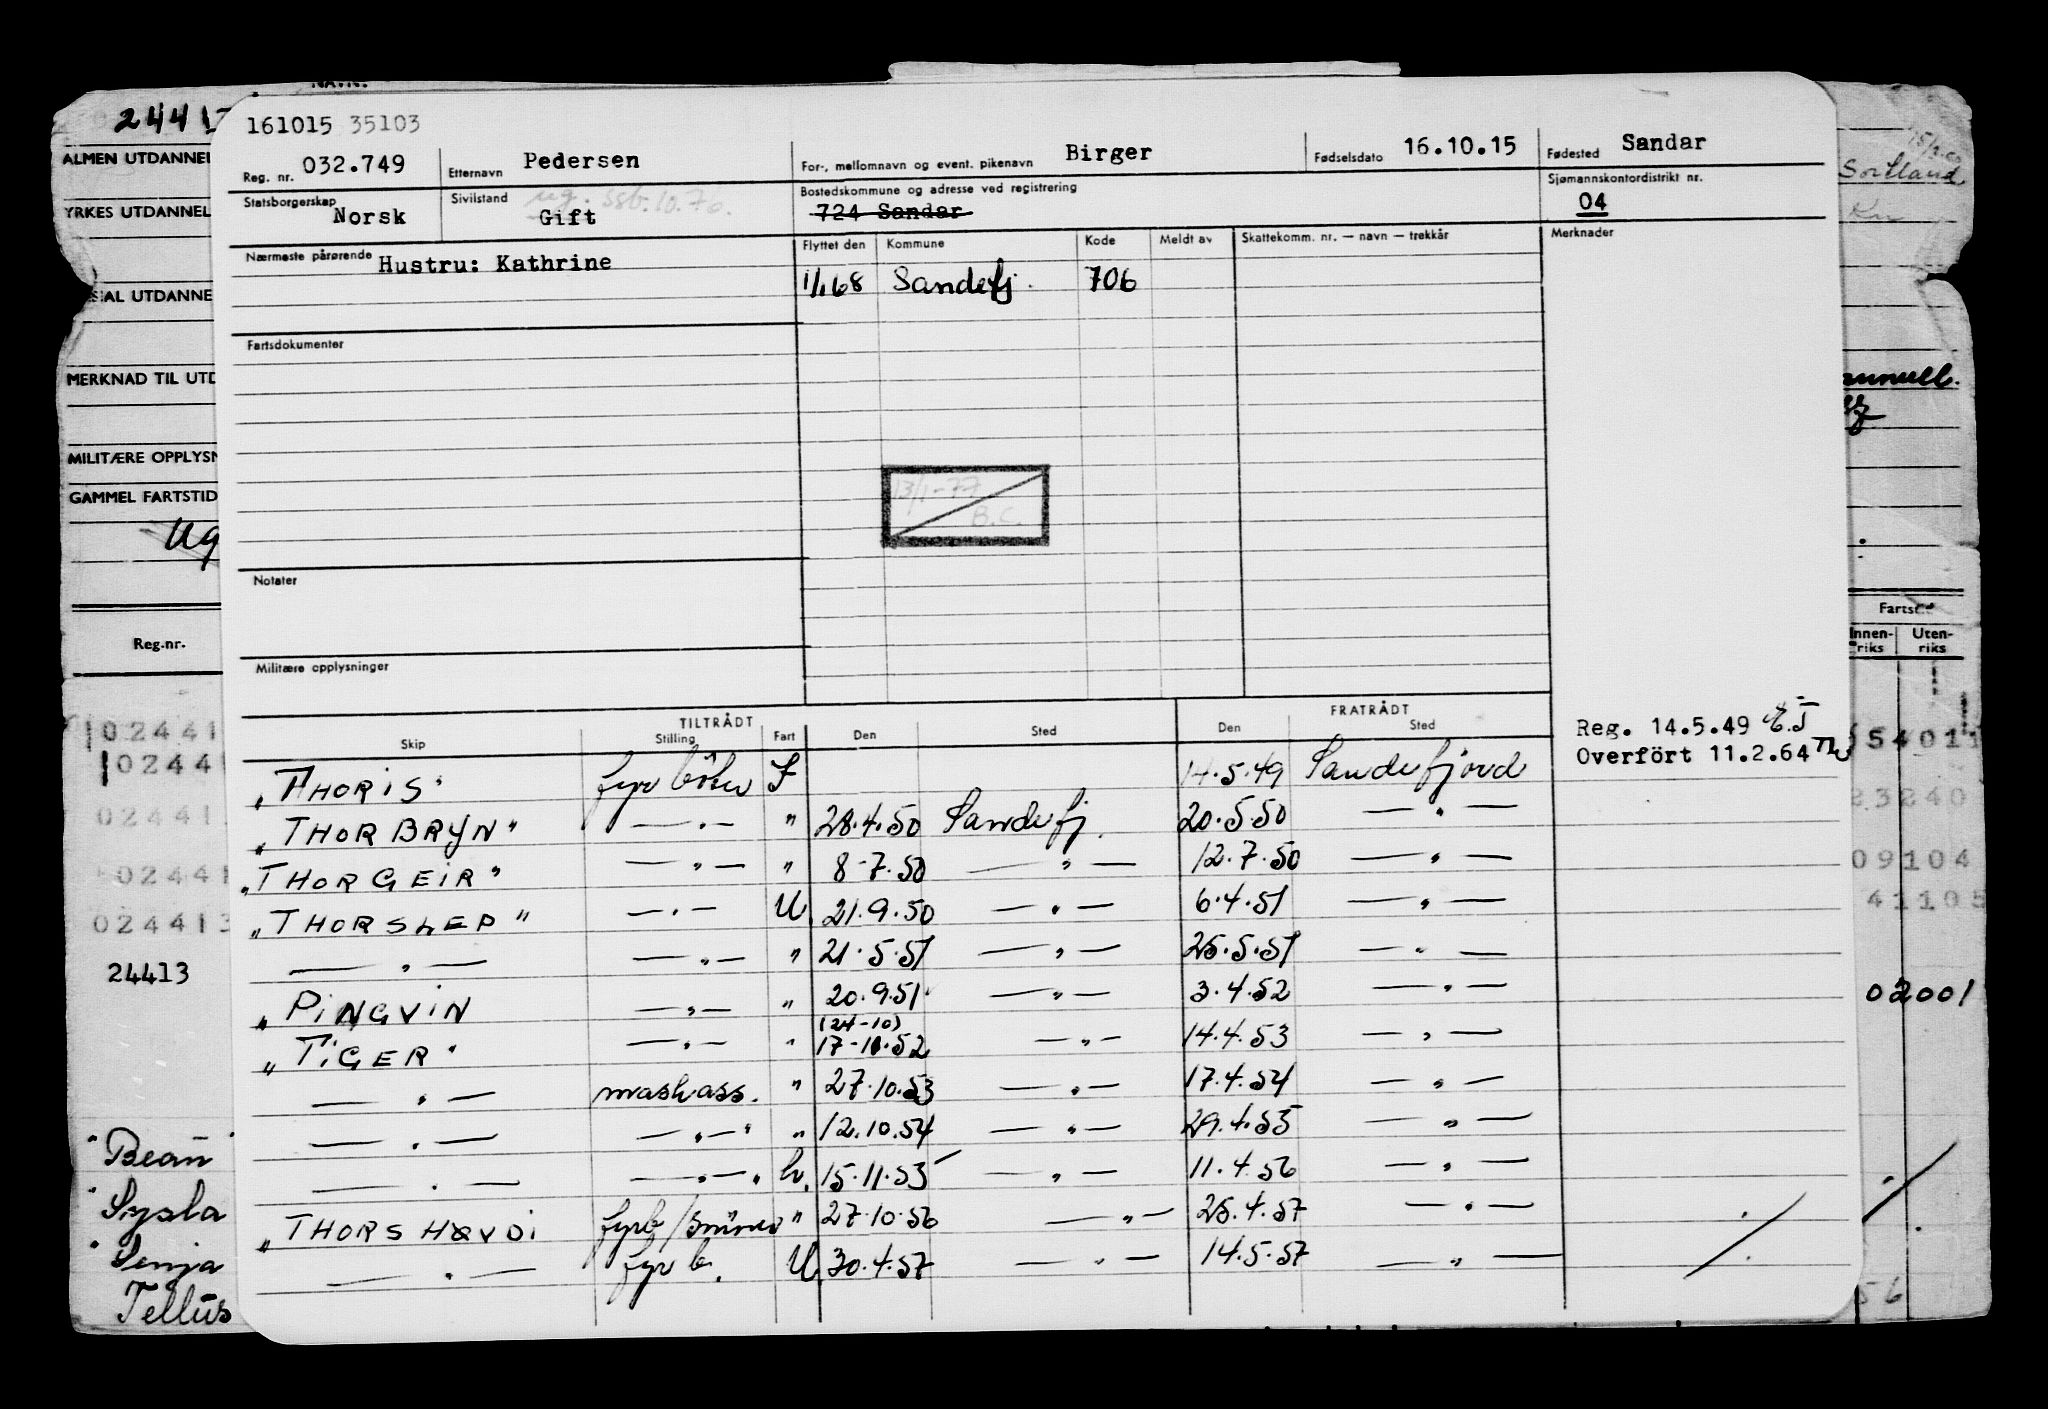 161015 35103
Reg. nr. 032.749 Etternavn Pedersen For-, mellomnavn og event. pikenavn Birger Fødselsdato 16.10.15 Fødested Sandar
Statsborgerskap Norsk Sivilstand ug. ssb. 10.76. Gift Bostedskommune og adresse ved registrering 724 Sandar Sjømannskontordistrikt nr. 04
Nærmeste pårørende Hustru: Kathrine Flyttet den Kommune Kode Meldt av Skattekomm. nr. — navn — trekkår Merknader
1/1 68 Sandefj. 706
Fartsdokumenter
13/1-77
B.C.
Notater
Militære opplysninger
TILTRÅDT FRATRÅDT
Skip Stilling Fart Den Sted Den Sted
Reg. 14.5.49
Overfört 11.2.64
"THORIS" fyrböter 14.5.49 Sandefjord
"THORBRYN" — " — " 28.4.50 Sandefj. 20.5.50 — " —
"THORGEIR" — " — " 8-7.50 — " — 12.7.50 — " —
"THORSLEP" — " — U 21.9.50 — " — 6.4.51 — " —
— " — — " — " 21.5.51 — " — 25.5.51 — " —
"PINGVIN — " — " 20.9.51 — " — 3.4.52 — " —
(24-10)
"TIGER" — " — " 17-10.52 — " — 14.4.53 — " —
— " — maskass. " 27.10.53 — " — 17.4.54 — " —
— " — — " — " 12.10.54 — " — 29.4.55 — " —
— " — — " — h. 15.11.55 — " — 11.4.56 — " —
"THORSHØVDI fyrb/ " 27.10.56 — " — 25.4.57 — " —
— " — fyrb. U 30.4.57 — " — 14.5.57 — " —
ALMEN UTDANNEL
YRKES UTDANNEL
AL UTDANNE
MERKNAD TIL UTD
MILITÆRE OPPLYSN
GAMMEL FARTSTID
Ug
Reg.nr.
02441
0244
02441
02441
024413
24413
"Bean"
"Sysla
"Senja
Tellus
Sortland
annull.
Innenriks
Utenriks
54011
23240
09104
41105
02001
56